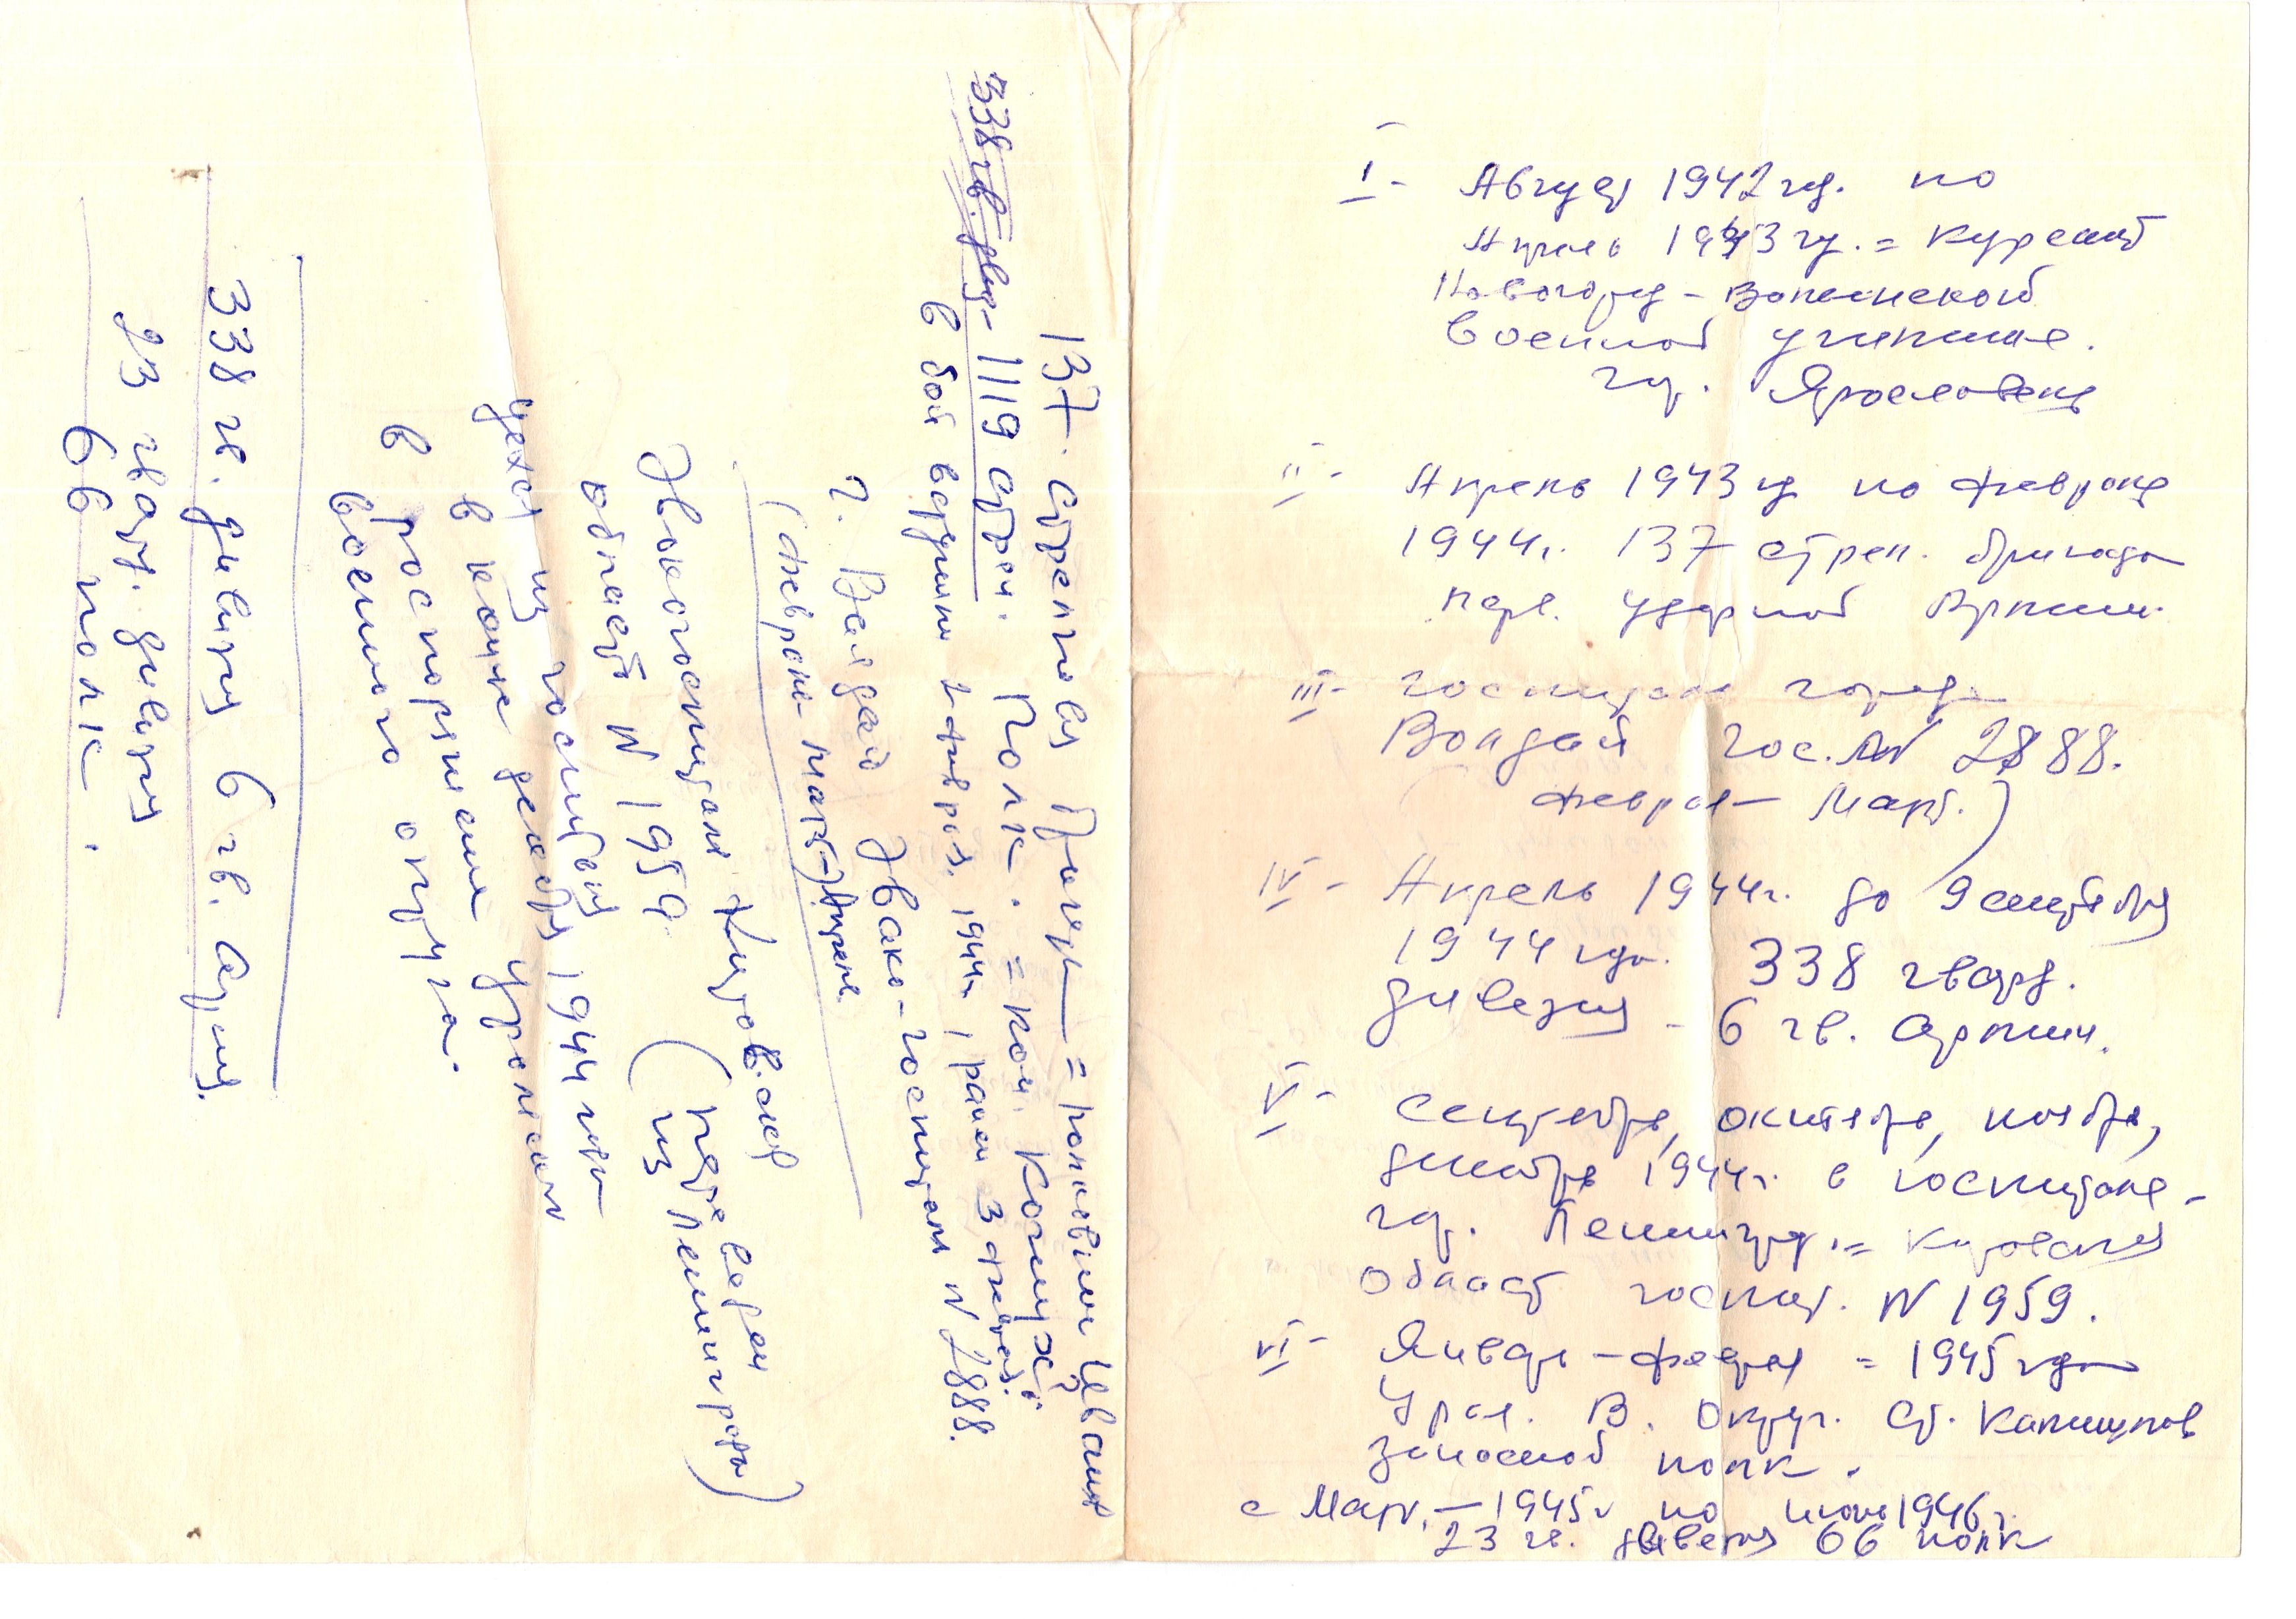 I - Август 1942 гд. по
Апрель 1943 гд. = курсант
Новогорд-Волынского
военной училище.
гор. Ярославль
II - Апрель 1943 гд по февраль
1944г. 137 стрел. бригада
перв. Ударной Армии.
III - госпиталь города
Волдай гос. N 2888.
февраль - Март.)
IV - Апрель 1944г. до 9 сентября
1944 года. 338 гвард.
дивезия - 6 гв. армии.
V - Сентябрь, октябрь, ноябрь,
декабрь 1944г. в госпитале -
гор. Ленинград. = Кировская
Област госпит. N 1959.
VI - Январь - феврал = 1945 года
Урал. В. Округ. Ст.
запасной полк.
с Март. - 1945г по июнь 1946г.
23 гв. дивезия 66 полк
137. стрелковая = полковник Иванов
338 гв. див - 1119 стрел. Полк. = ком.
в бой вернули 2 феврал. 1944г, ранен 3 феврал.
г. Валдай Эвако-госпиталь N 2888.
(февраль-март-) Апрель.
Эвокогоспиталь Кировской
области N 1959. (переведен
из Ленинграда)
уехал из госпиталя
в конце декабря 1944 года
в роспоржение уральского
военного округа.
338 гв. дивизия 6 гв. армия.
23 гвард. дивизия
66 полк.